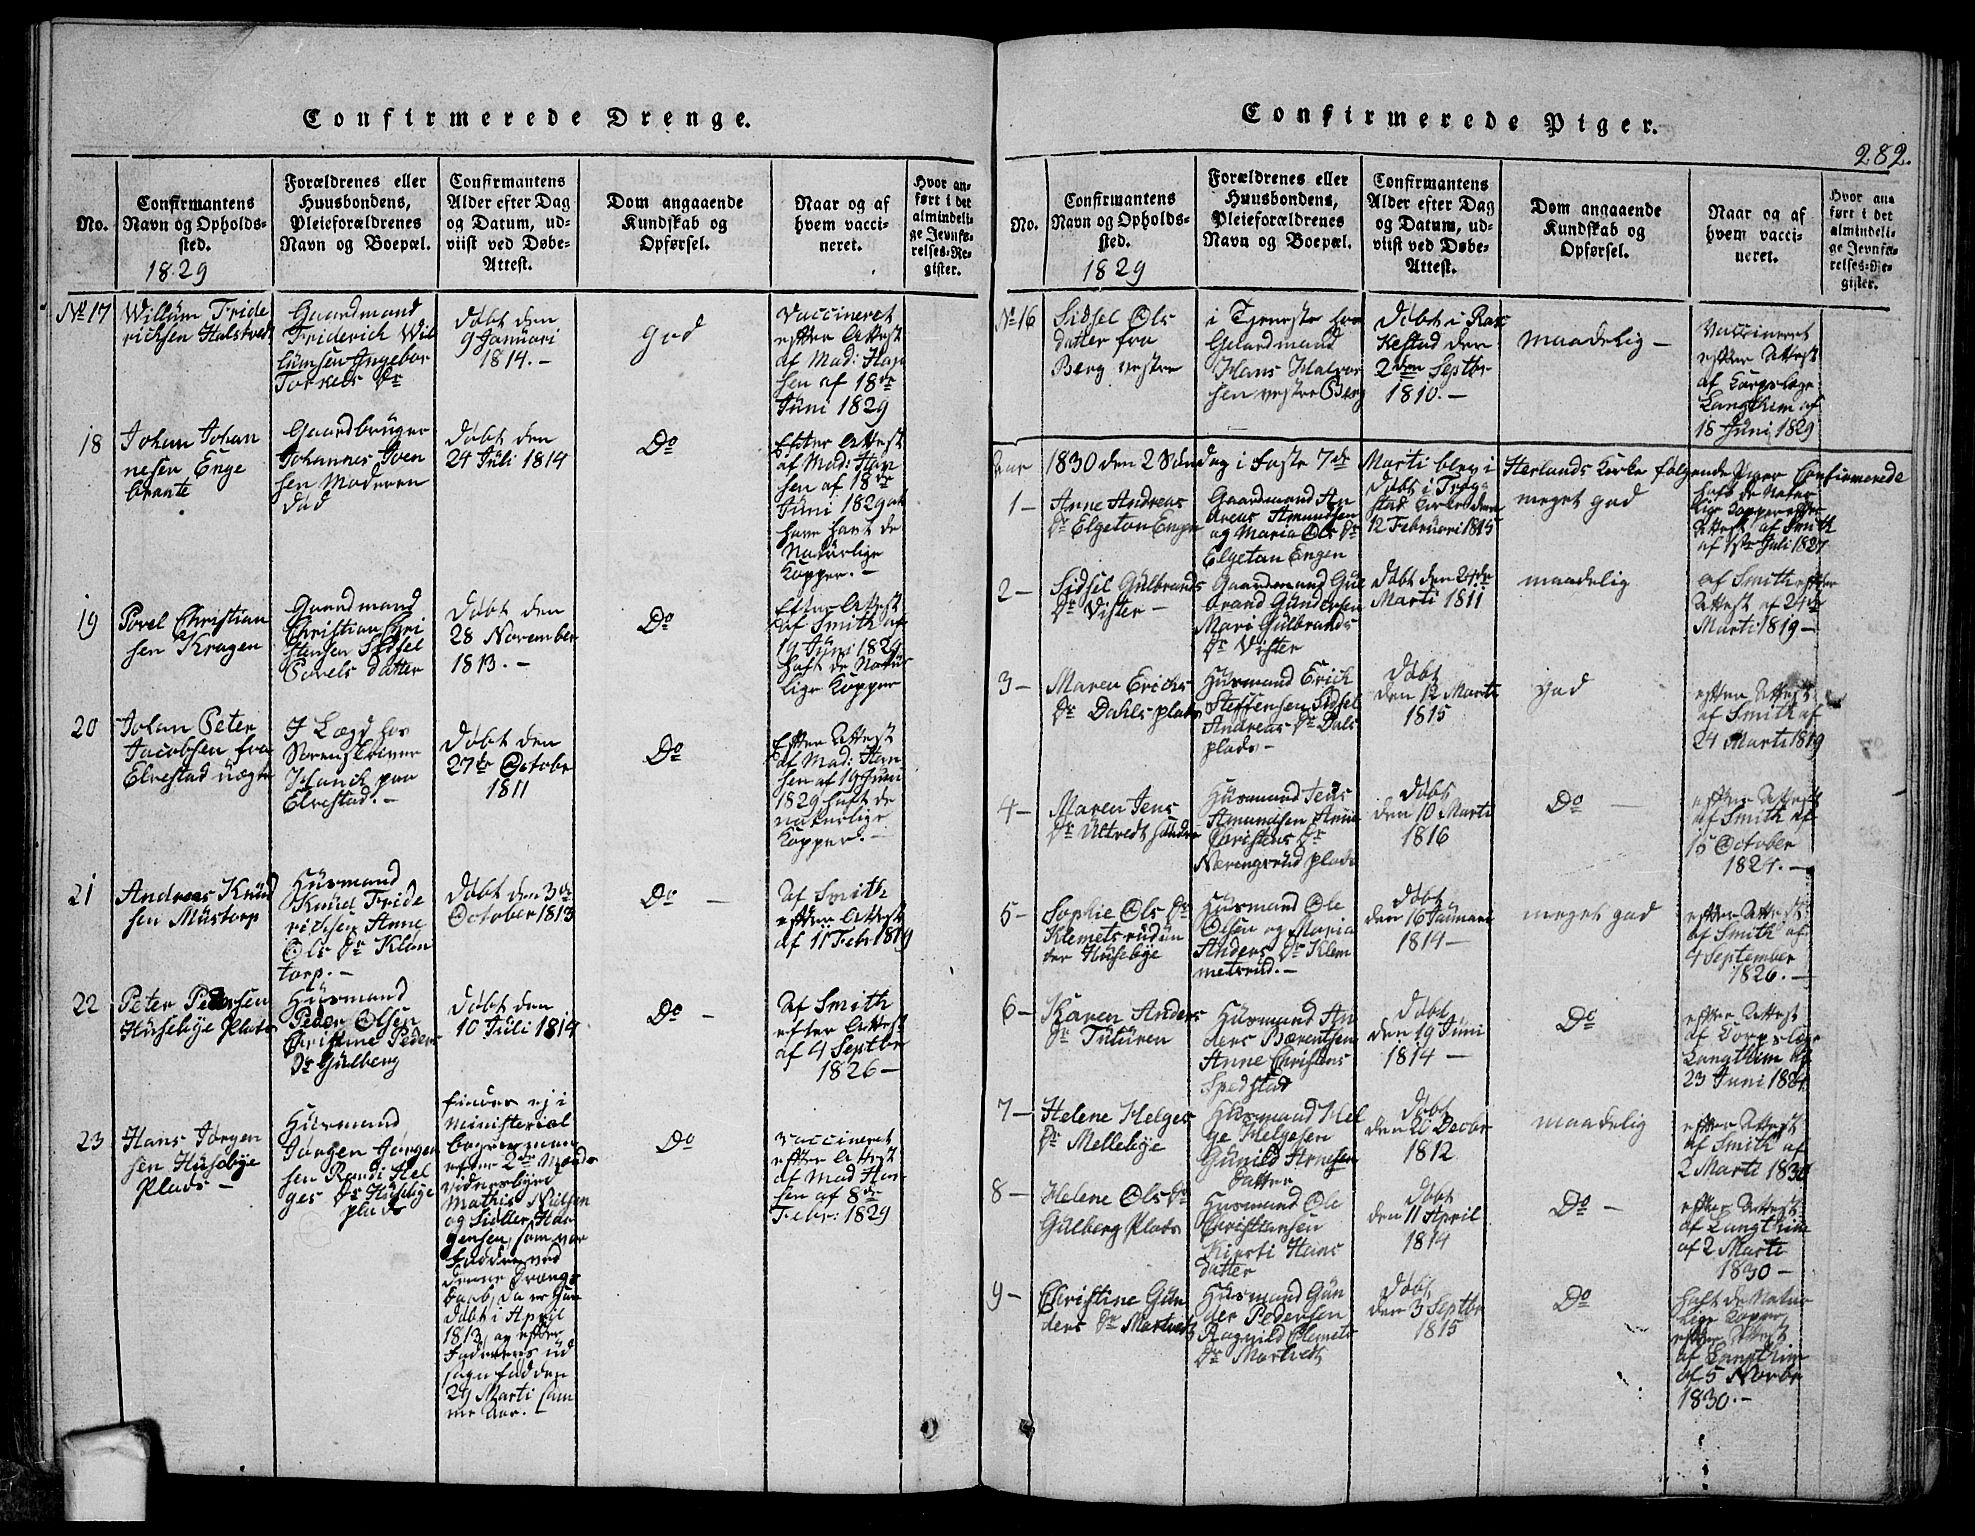 Confirmerede Drenge.
No.
Confirmantens
Navn og Opholds-
sted.
1829
Forældrenes eller
Huusbondens,
Pleieforældrenes
Navn og Boepæl.
Confirmantens
Alder efter Dag
og Datum, ud-
viist ved Døbe-
Attest.
Dom angaaende
Kundskab og
Opførsel.
Naar og af
hvem vacci-
neret.
Hvor an-
ført i det
almindeli-
ge Jevnfø-
relses-Re-
gister.
No 17
Willum Fride
richsen Halstvedt
Gaardmand
Friderich Wil
lumsen Ingebor
Torkels Dr
Døbt den
9 Januari
1814. -
god
Vaccineret
efter Attest
af Mad: Han
sen af 18de
Juni 1829
18
Johan Johan
nesen Enge
brante
Gaardbruger
Johannes Iven
sen Moderen
død
Døbt den
24 Juli 1814
Do
Efter Attest
af Mad: Han
sen af 18de
Juni 1829 at
have havt de
Naturlige
Kopper. -
19
Povel Christian
sen Kragen
Gaardmand
Christian Chri
stensen Sidsel
Povels datter
Døbt den
28 November
1813. -
Do
Efter Attest
af Smith af
19 Juni 1829
haft de Natur
lige Kopper
20
Johan Peter
Jacobsen fra
Elvestad uægte
I Lægd hos
Sorenskriver
Munch paa
Elvestad. -
Døbt den
27de October
1811
Do
Efter Attest
af Mad: Han
sen af 19 Juni
1829 haft de
naturlige
Kopper. -
21
Andreas Knud
sen Mustorp
Husmand
Knud Fride
richsen Anne
Ols Dr Klon
torp. -
Døbt den 3de
October 1813
Do -
Af Smith
efter Attest
af 11 Febr 1819
22
Peter Pedersen
Husebye Plads
Husmand
Peder Olsen
Christine Peders
Dr Gulberg
Døbt den
10 Juli 1814
Do -
Af Smith
efter Attest
af 4 Septbr
1826 -
23
Hans Jørgen
sen Husebye
Plads -
Husmand
Jørgen Jørgen
sen Randi Hel
ges Dr Husebye
plads
findes ej i
Ministerial
bogen, men
efter 2de Mænds
Vidnesbyrd
Mathis Nielsen
og Sidller Han
Jensen, som var
Faddere ved
denne Drængs
Daab, da er han
døbt i April
1813, og efter
Faderens ud
sagn fød den
29 Marti sam
me Aar. -
Do
Vaccineret
efter Attest
af Mad Han
sen af 8de
Febr: 1829
Confirmerede Piger.
282.
No.
Confirmantens
Navn og Opholds-
sted.
1829
Forældrenes eller
Huusbondens,
Pleieforældrenes
Navn og Boepæl.
Confirmantens
Alder efter Dag
og Datum, ud-
viist ved Døbe-
Attest.
Dom angaaende
Kundskab og
Opførsel.
Naar og af
hvem vacci-
neret.
Hvor an-
ført i det
almindeli-
ge Jevnfø-
relses-Re-
gister.
No 16
Sidsel Ols
datter fra
Berg vestre
i Tjeneste hos
Gaardmand
Hans Halvor
sen vestre Berg
Døbt i Rak
kestad den
2den Septbr
1810. -
maadelig -
Vaccineret
efter Attest
af Korpslæge
Langthim af
18 Juni 1829
Aar 1830 den 2 Søndag i Faste 7de Marti blev i Herlands Kirke følgende Piger Confirmerede
1 -
Anne Andreas
Dr Elgeton Engen
Gaardmand An
dreas Amundsen
og Maria Ols Dr
Elgetan Engen
Døbt i Tryg
stad Kirke den
12 Februari 1815
meget god
haft de Natur
lige Kopper efter
Attest af Smith
af 1ste Juli 1827
2 -
Sidsel Gulbrands
Dr Vister -
Gaardmand Gul
brand Gundersen
Mari Gulbrands
Dr Vister
Døbt den 24de
Marti 1811
maadelig
af Smith efter
Attest af 24de
Marti 1819 -
3 -
Maren Erichs
Dr Dahls plads
Husmand Erich
Steffensen Sidsel
Andreas Dr Dals
plads -
Døbt
den 12 Marti
1815
god
efter Attest
af Smith af
24 Marti 1819
4 -
Maren Jens
Dr Ultvedt søndre
Husmand Jens
Amundsen Anne
Christens Dr
Næringsrud plads
Døbt
den 10 Marti
1816
Do -
efter Attest
af Smith af
15 October
1824. -
5 -
Sophie Ols Dr
Klemetsrud un
der Husebye
Husmand Ole
Olsen og Maria
Anders Dr Klem
metsrud. -
Døbt
den 16 Januari
1814 -
meget god
efter Attest
af Smith af
4 September
1826. -
6 -
Karen Anders
Dr Tuturen
Husmand An
ders Bærentsen
Anne Christens
Spedstad
Døbt
den 19 Juni
1814 -
Do
efter Attest
af Corpslæge
Langthim af
23 Juni
7 -
Helene Helges
Dr Mellebye
Husmand Hel
ge Helgesen
Gunild Arnesen
Datter
Døbt
den 20 Decbr
1812
maadelig
efter Attest
af Smith af
2 Marti 1830
8 -
Helene Ols Dr
Gulberg Plads
Husmand Ole
Christensen
Kirsti Hans
datter
Døbt
den 11 April
1814
Do -
efter Attest
af Langthim
af 2 Marti
1830 -
9 -
Christine Gun
ders Dr Martvedt
Husmand Gun
der Pedersen
Ragnild Clemets
Dr Martvedt
Døbt
den 3 Septbr
1815
Do
haft de Natur
lige Kopper
efter Attest
af Langthim
af 5 Novbr
1830. -